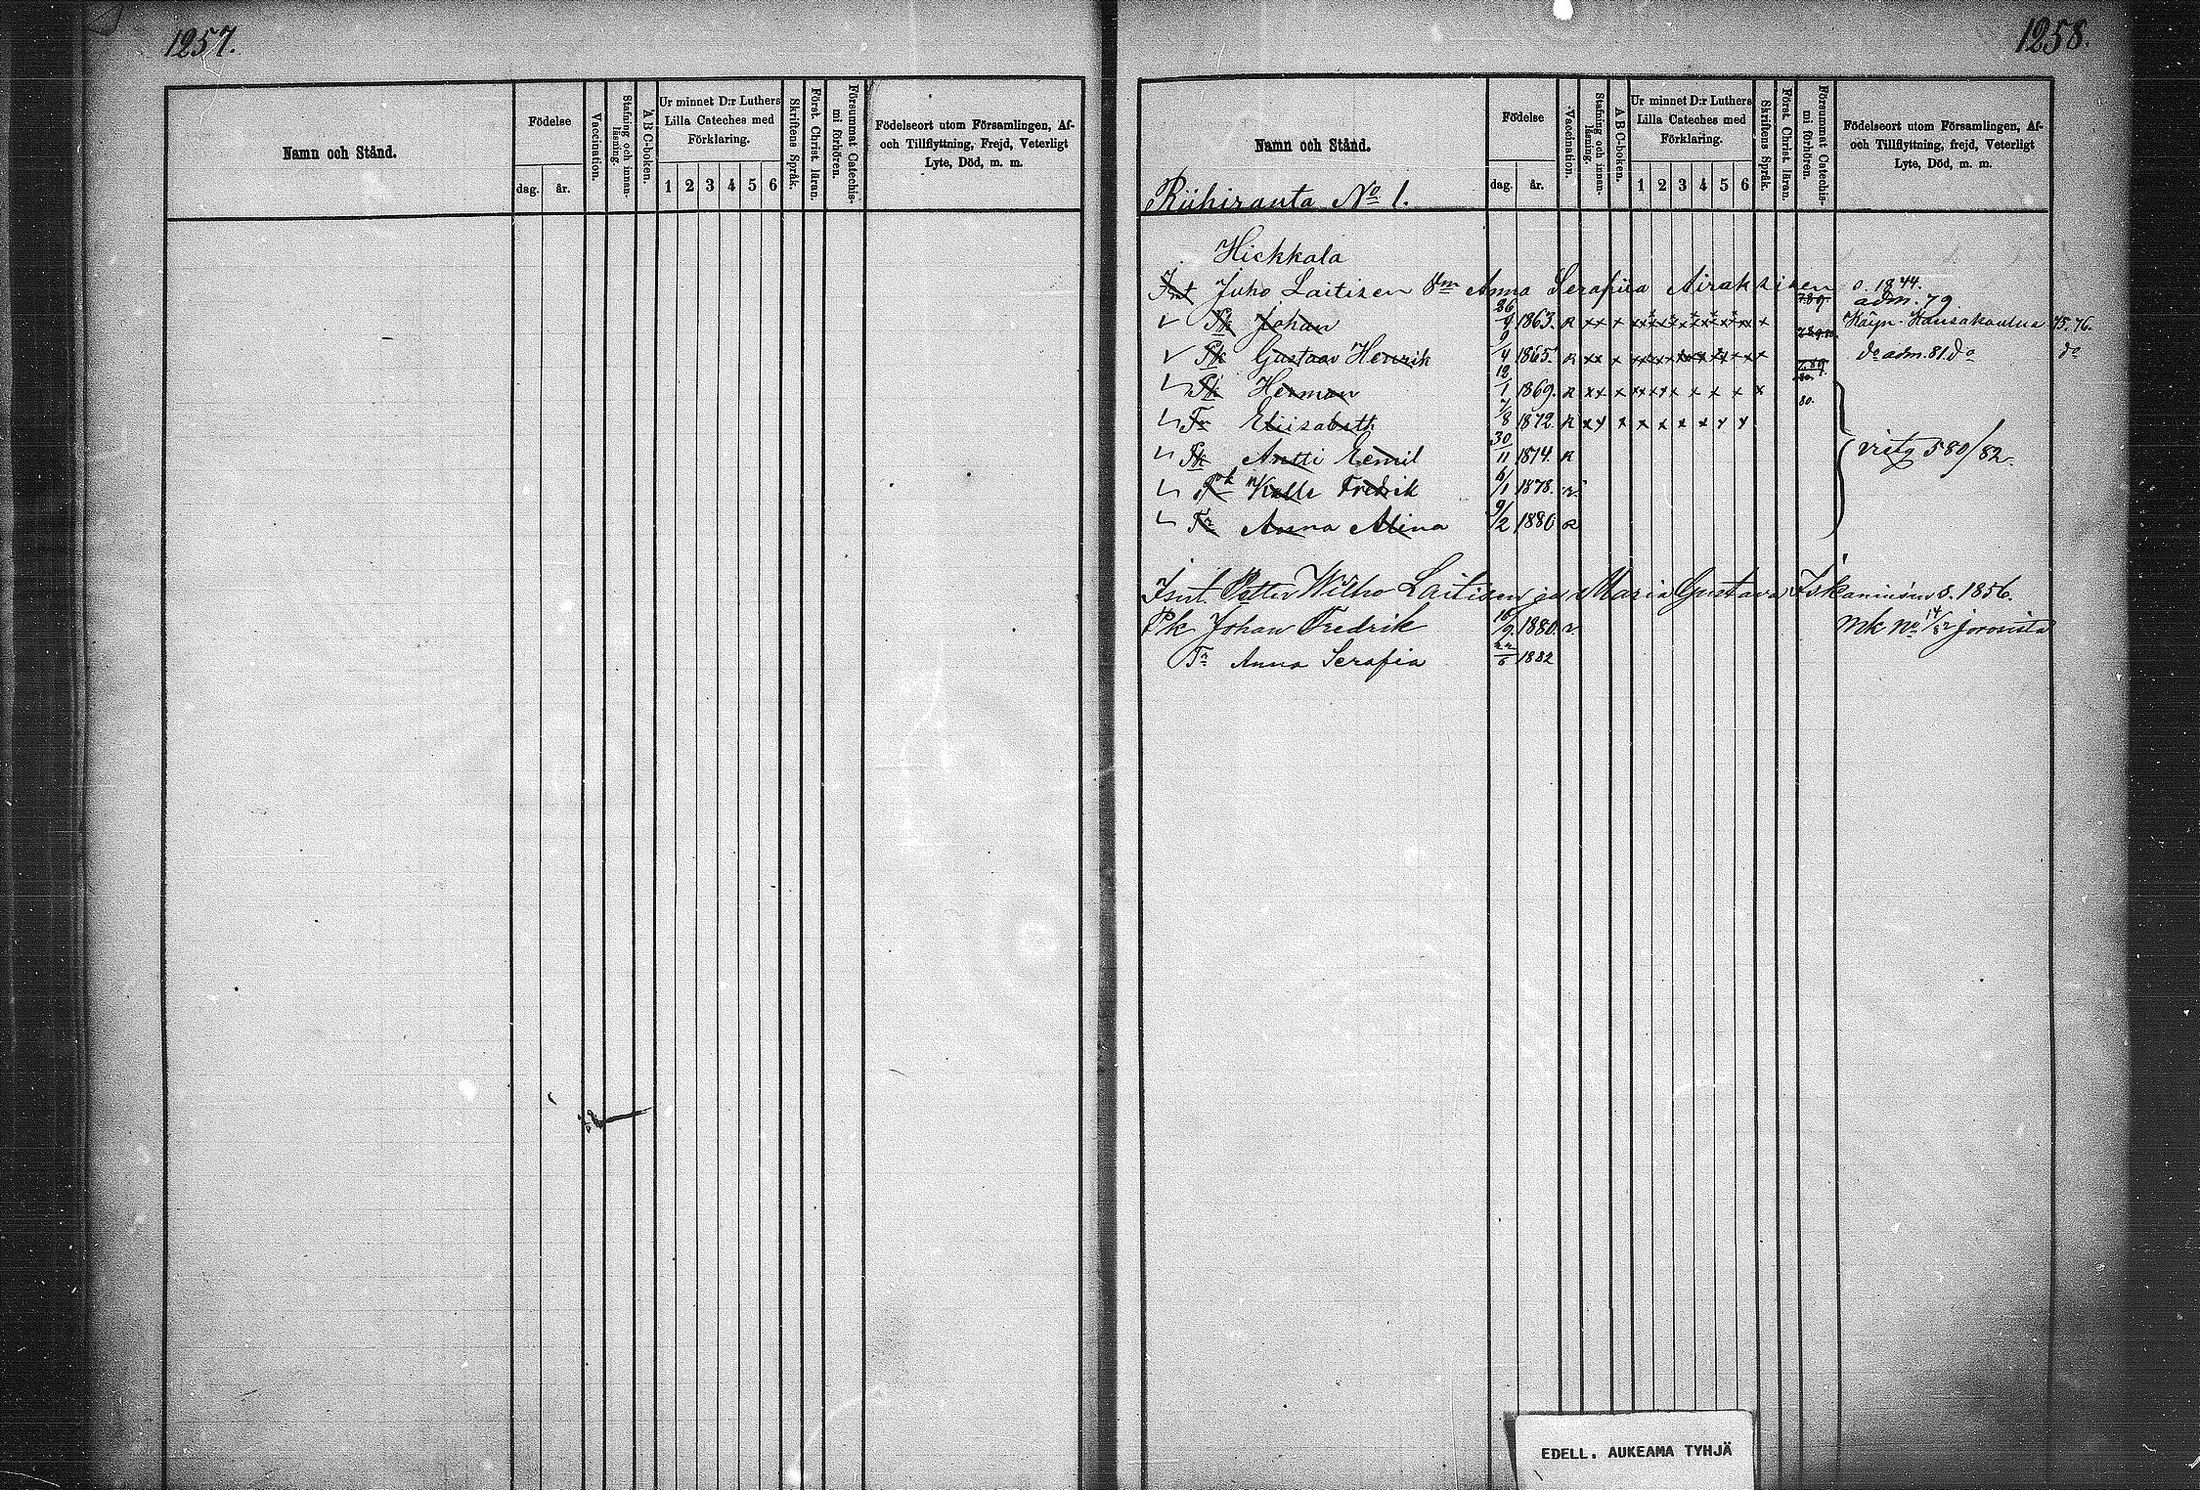 1257.
Namn och Stånd.
Födelse
dag. år.
Vaccination.
Stafning och innan-läsning.
A B C-boken.
Ur minnet D:r Luthers
Lilla Cateches med
Förklaring.
1 2 3 4 5 6
Skriftens Språk.
Först. Christ. läran.
Försummat Catechis-mi förhören.
Födelseort utom Församlingen, Af-
och Tillflyttning, Frejd, Veterligt
Lyte, Död, m. m.
1258.
Namn och Stånd.
Riihiranta No 1.
Födelse
dag. år.
Vaccination.
Stafning och innan-läsning.
A B C-boken.
Ur minnet D:r Luthers
Lilla Cateches med
Förklaring.
1 2 3 4 5 6
Skriftens Språk.
Först. Christ. läran.
Försummat Catechis-mi förhören.
Födelseort utom Församlingen, Af-
och Tillflyttning, frejd, Veterligt
Lyte, Död, m. m.
Hiekkala
Juho Laitisen Anna Serafiia Airaksisen s. 1844.
adm. 79
Pk Johan 26/4 1863. R xx x x Käyn. Kansakoulua 75. 76.
Pk Gustaav Henrik 9/4 1865. R xx x x do adm. 81. do do
Pk Herman 12/1 1869. R xx x x x x x x 80.
Tr Eliisabett 7/8 1872. R xx x x x x x x x 80.
Pk Antti Eemil 30/11 1874. R
virtg 580/82.
Pk Kalle Fredrik 6/1 1878. r
Tr Anna Alina 9/2 1880 R
Petter Wilho Laitisen ja Maria Gustava s. 1856.
Pk Johan Fredrik 1880. r mk No 14/82 Joroisista
Tr Anna Serafia 1882
EDELL. AUKEAMA TYHJÄ